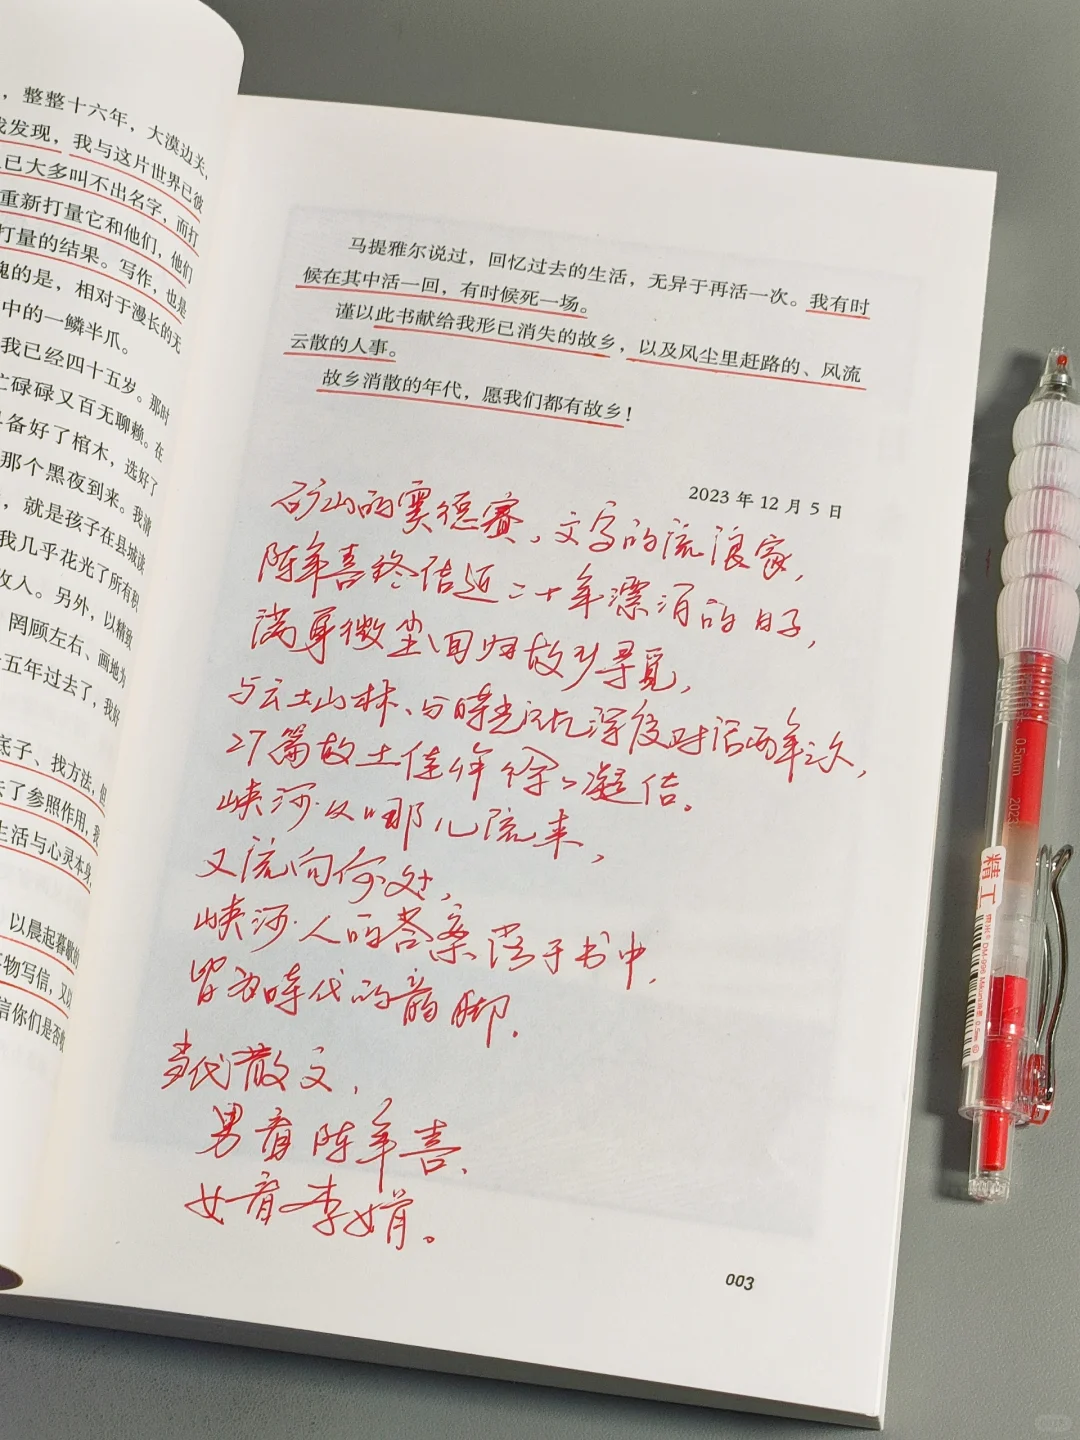 ，整整十六年，大漠边关，
我发现，我与这片世界已彼
已大多叫不出名字，而打
重新打量它和他们，他们
打量的结果。写作，也是
愧的是，相对于漫长的无
中的一鳞半爪。
我已经四十五岁。那时
忙碌碌又百无聊赖。在
备好了棺木，选好了
那个黑夜到来。我清
，就是孩子在县城读
我几乎花光了所有积
收入。另外，以精致
罔顾左右、画地为
五年过去了，我好
底子、找方法，但
去了参照作用，我
生活与心灵本身
以晨起暮歇的
物写信，又以
言你们是否收
马提雅尔说过，回忆过去的生活，无异于再活一次。我有时
候在其中活一回，有时候死一场。
谨以此书献给我形已消失的故乡，以及风尘里赶路的、风流
云散的人事。
故乡消散的年代，愿我们都有故乡！
2023 年 12 月 5 日
矿山的奥德赛，文字的流浪家，
陈年喜终结近二十年漂泊的日子，
满身微尘回归故乡寻觅，
与云土山林、与时光记忆深度对话两年之久，
27篇故土佳作徐徐凝结。
峡河从哪儿流来，
又流向何处，
峡河·人的答案落于书中，
皆为时代的韵脚。
当代散文，
男有陈年喜，
女有李娟。
003
0.5mm
2023
精工
DM-996